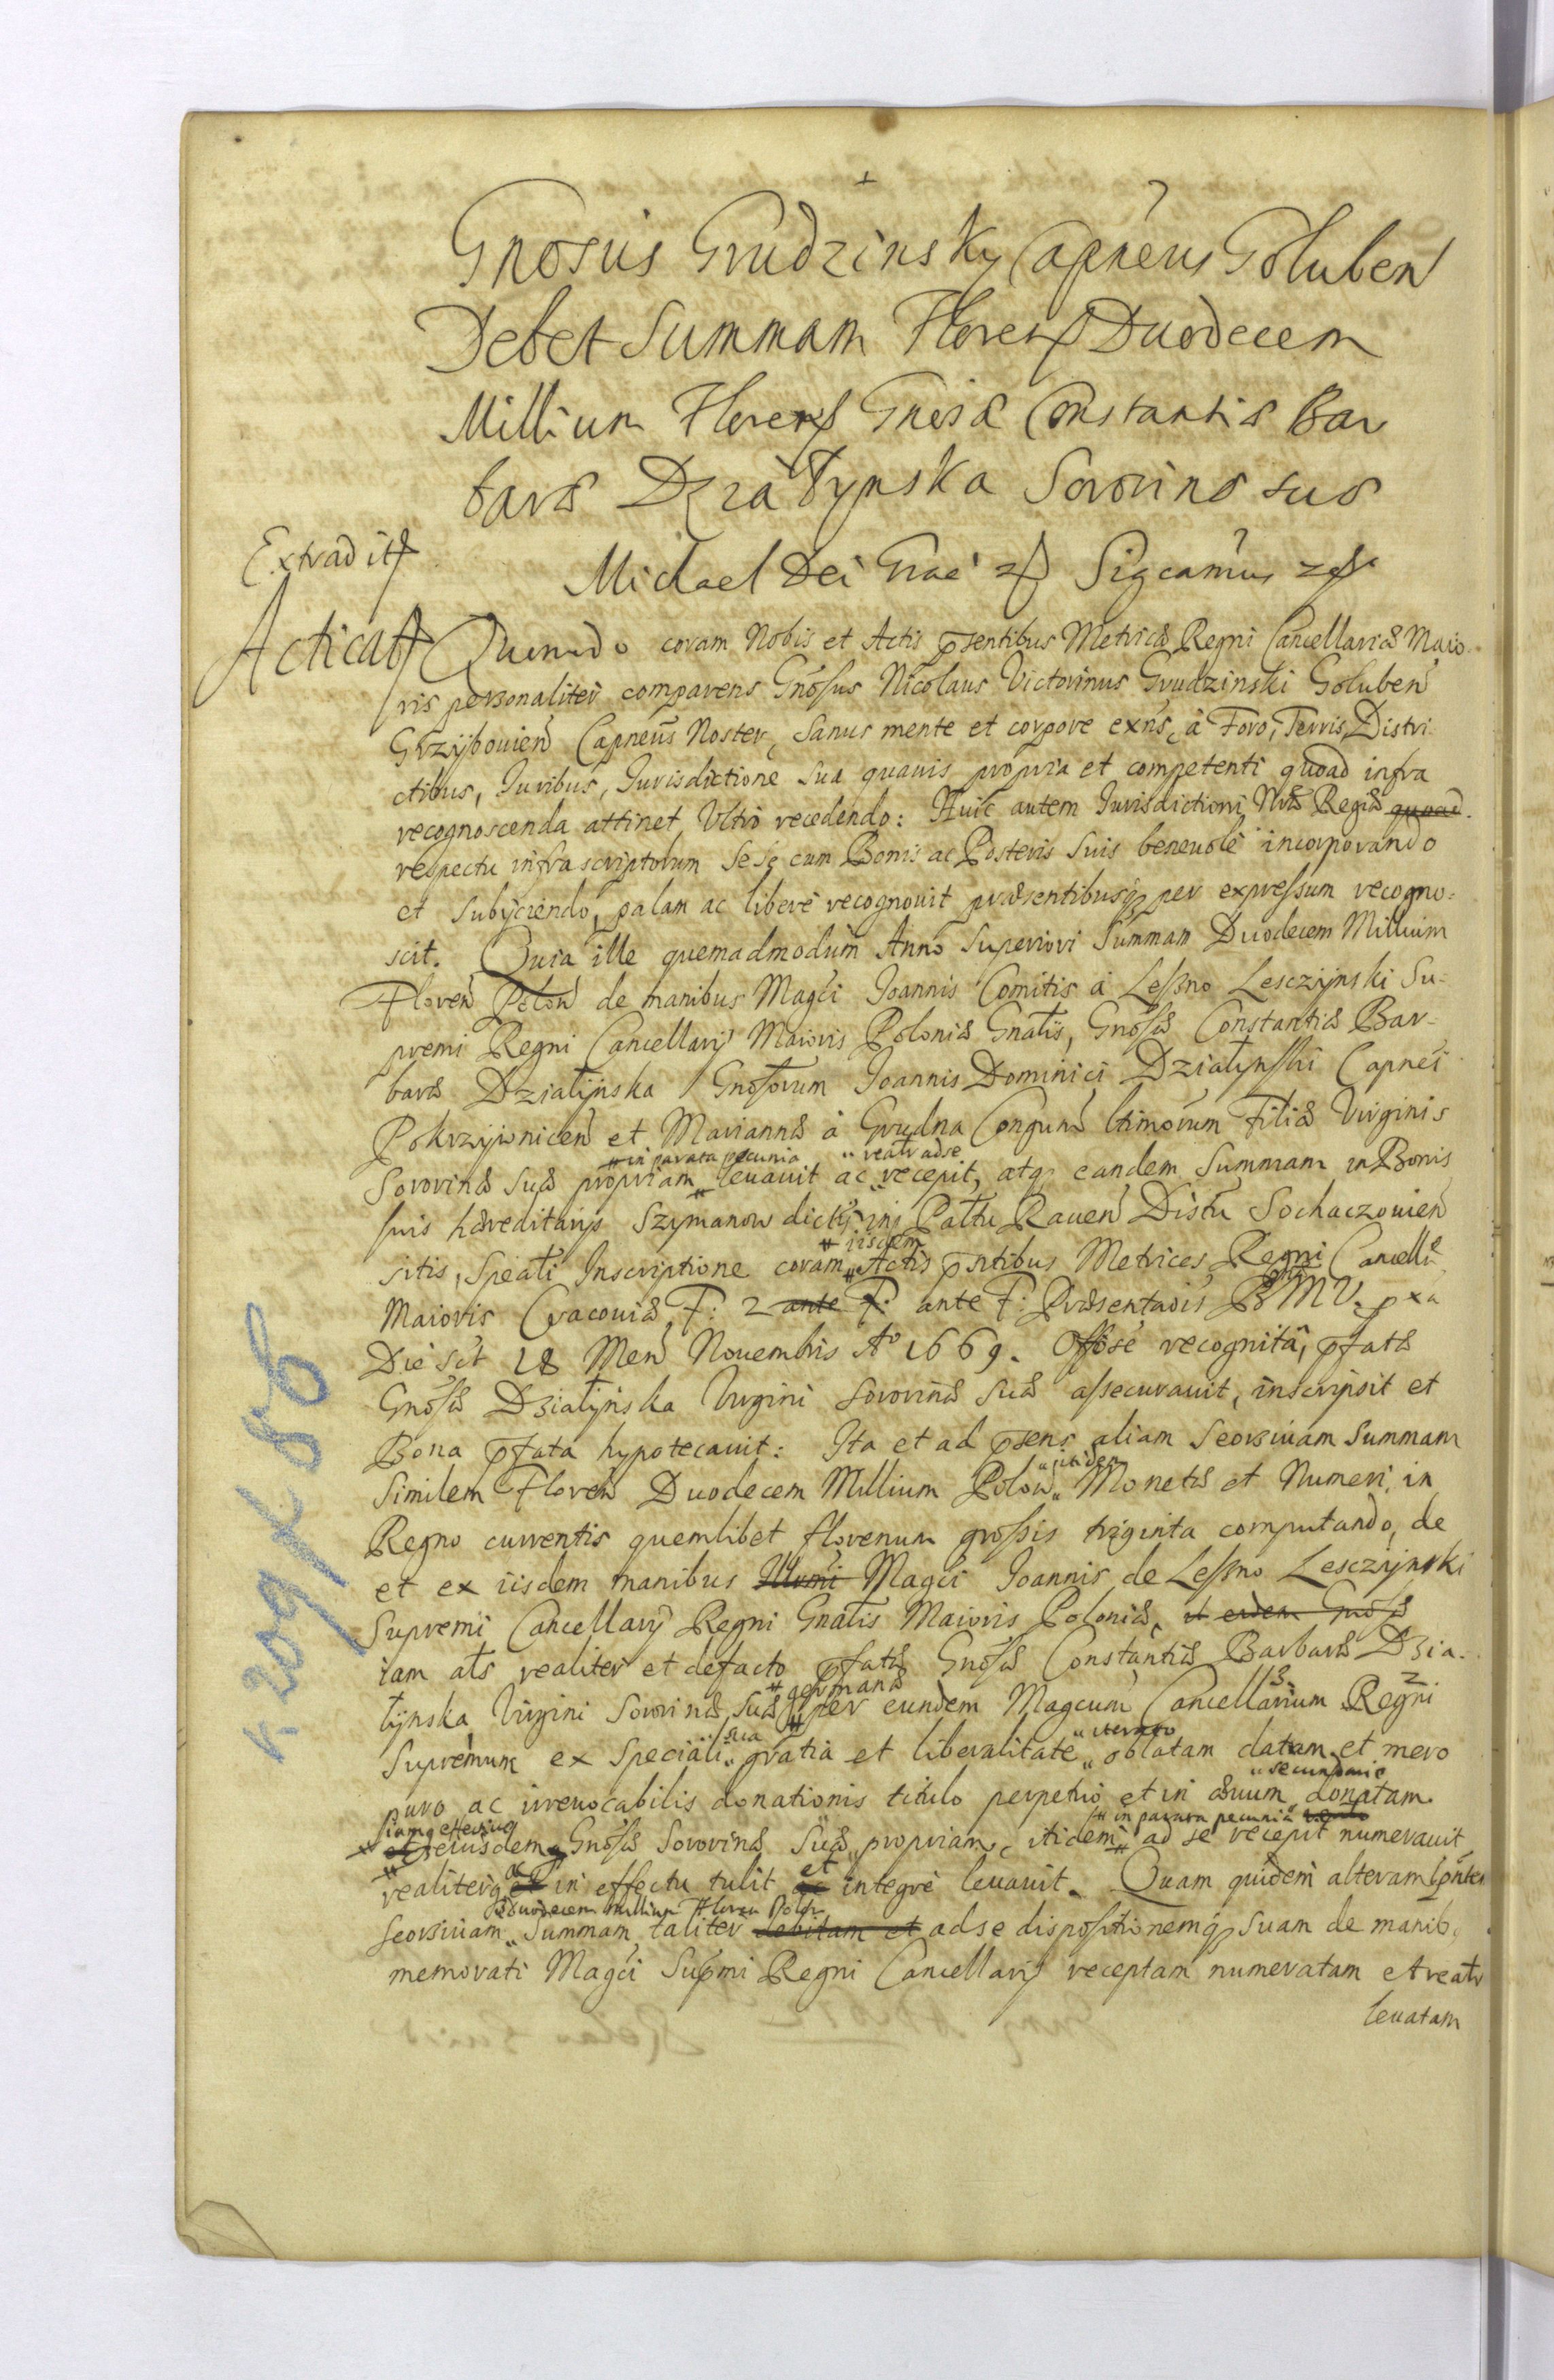 Gnosus Grudzinsky Capneus Goluben
Debet Summam Floren Duodecem
Millium Floren Gnosæ Constantiæ Bar
baræ Działynska Sororinæ suæ
Extradit
Michael Dei Graẽ Sigcamus
Acticat
Quomodo coram Nobis et Actis pñtibus Metricæ Regni Cancellariæ Maio-
ris personaliter comparens Gnosus Nicolaus Victorinus Grudzinski Goluben
Grzybouien Capneus Noster, Sanus mente et corpore exñs, à Foro, Terris, Distri-
ctibus, Iuribus, Iurisdictione sua quauis propria et competenti quoad infra
recognoscenda attinet Ultro recedendo: Huic autem Iurisdictioni Nræ Regiæ quoad
respectu infrascriptorum Sese cum Bonis ac Posteris suis beneuole incorporando
et subyciendo, palam ac liberè recognouit præsentibusq per expressum recogno:
scit. Quia ille quemadmodum Anno Superiori Summam Duodecem Millium
Floren Polon de manibus Magci Joannis Comitis à Leszno Lesczynski Su-
premi Regni Cancellarÿ Maioris Poloniæ Gnalis, Gnosæ Constantiæ Bar-
baræ Dzialynska Gnosorum Joannis Dominici Dzialynski Capnei
Pokrzywnicen et Mariannæ à Grudna Coniugum ltimorum Filiæ Virginis
# in parata pecunia " realr adse
Sororinæ Suæ propriam # leuauit ac " recepit, atq eandem Summam in Bonis
suis hæreditarys Szymanow dictis in Pałtu Rauen Distu Sochaczouien
# iisdem
sitis, Speali Inscriptione coram # Actis pntibus Metrices Regni Cancellæ
Maioris Cracouiæ F: 2 ante F: ante F: Præsentaois B MV. pxa
Die sct 18 Men Nouembris Aº 1669. Offose recognitâ, pfatæ
Gnosæ Dzialynska Virgini Sororinæ Suæ assecurauit, inscripsit et
Bona pfata hypotecauit: Ita et ad psens aliam Seorsiuam Summam
" itidem
Similem Floren Duodecem Millium Polon " Monetæ et Numeri in
Regno currentis quemlibet florenum grossis triginta computando, de
et ex iisdem manibus Illrmi Magci Joannis de Leszno Lesczynski
Supremi Cancellarÿ Regni Gnalis Maioris Poloniæ, et eidem Gnosæ
iam als realiter et defacto pfatæ Gnosæ Constantiæ Barbaræ Dzia-
# germanæ 3 2
łynska Virgini Sororinæ Suæ # per eundem Magcum Cancellarium Regni
" sua " iterato
Supremum ex Speciali " gratia et liberalitate " oblatam datam et mero
" secundario
puro ac irreuocabilis donationis titulo perpetuo et in æuum donatam
iamq effectiue # in parata pecunia
et eiusdem Gnosæ Sororinæ Suæ propriam, itidem # ad se recepit numerauit
ac et
realiterq et in effectu tulit ac integrè leuauit. Quam quidem alteram
" duodecem millium Floren Polon
Seorsiuam " Summam taliter debitam et adse dispositionemq Suam de manib,
memorati Magci Supmi Regni Cancellarÿ receptam numeratam et realr
leuatam
k 209 K 86